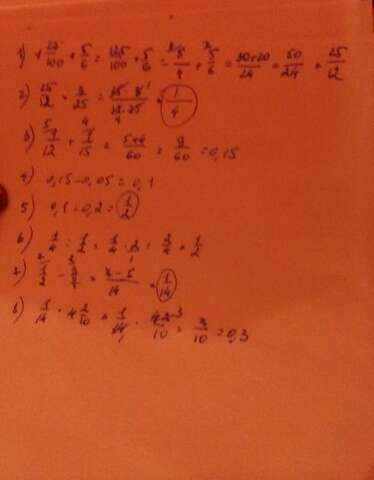 1) 1 25/100 + 5/6 = 125/100 + 5/6 = 5/4 + 5/6 = 30+20/24 = 50/24 = 25/12
2) 25/12 · 3/25 = 25·3/12·25 = 1/4
3) 1/12 + 1/15 = 5+4/60 = 9/60 = 0,15
4) 0,15-0,05=0,1
5) 0,1:0,2= 1/2
6) 1/4 : 1/2 = 1/4 · 2/1 = 2/4 = 1/2
7) 1/2 - 3/7 = 7-6/14 = 1/14
8) 1/14 · 4 2/10 = 1/14 · 42/10 = 3/10 = 0,3